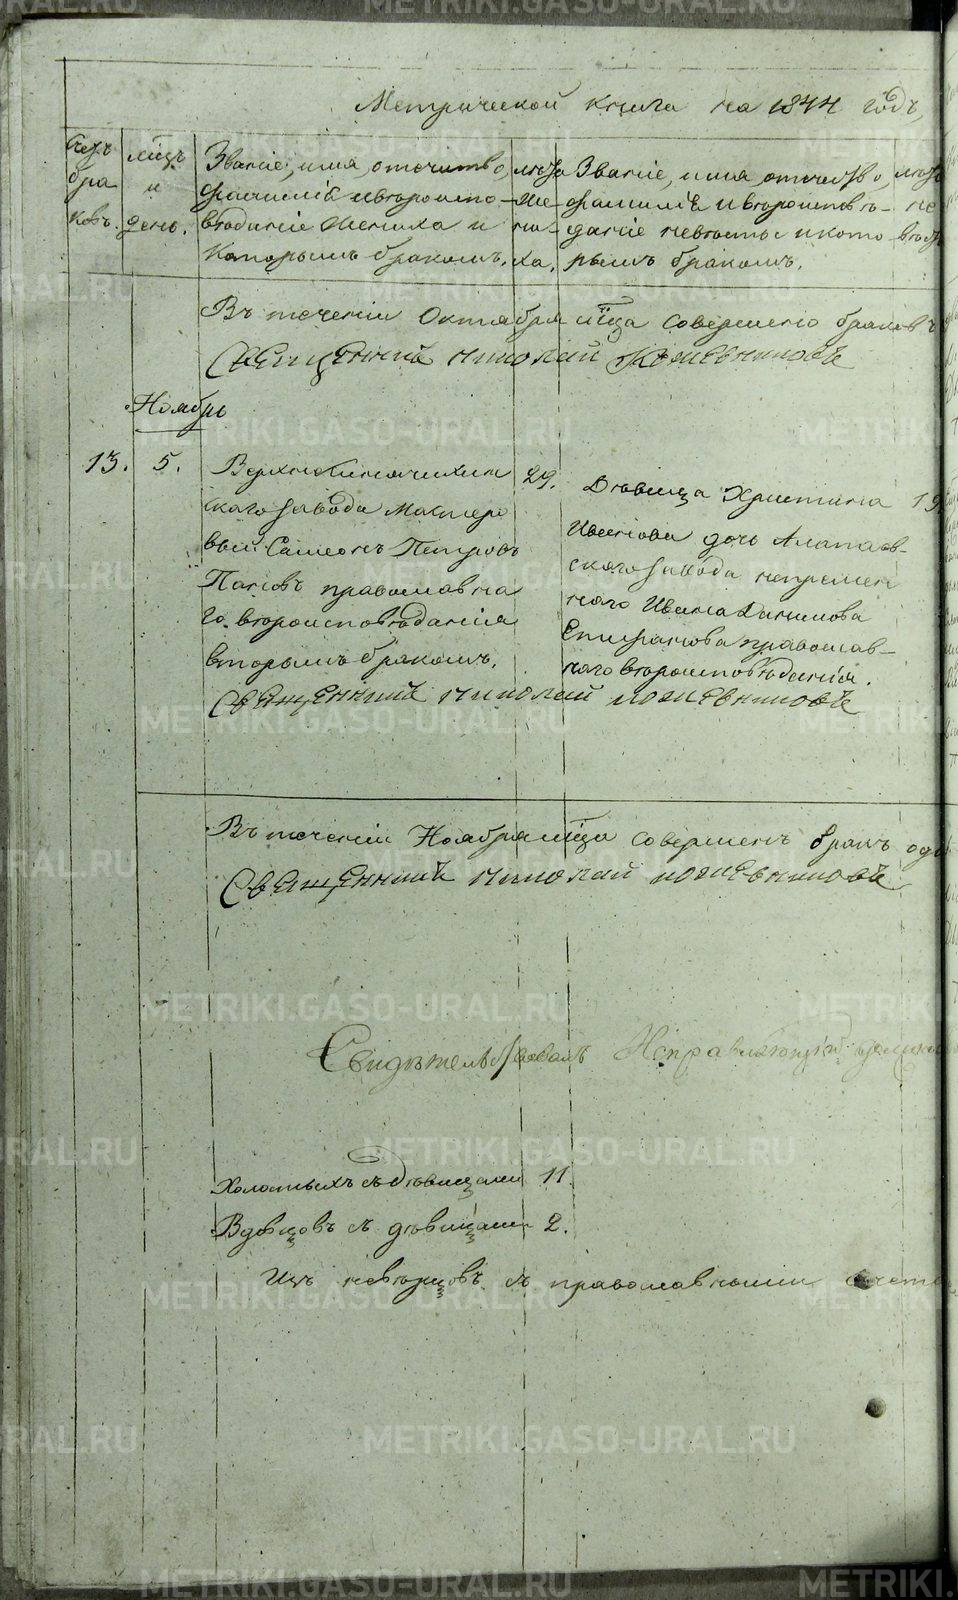 Метрической книги на 1844 годъ,
Счетъ бра ковъ.
мѣсяцъ и день.
Званіе, имя, отечество,
фамилія и вѣроиспо-
вѣданіе жениха и
которымъ бракомъ.
лѣта же- ни- ха.
Званіе, имя, отечество,
фамилія и вѣроисповѣ-
даніе невѣсты и кото-
рымъ бракомъ.
лѣта не вѣсты
Въ теченіи Октября мѣца совершено браковъ
Священникъ Николай Кожевниковъ
Ноябрь
13. 5.
Верхнесинячихин
скаго завода мастеро
вый Самсонъ Петровъ
Пановъ православна
го вѣроисповѣданія
вторымъ бракомъ.
29.
Дѣвица Христина
Иванова дочь Алапаев-
скаго завода непремен
наго Ивана Данилова
Епифанова православ-
наго вѣроисповѣданія.
19
Священникъ Николай Кожевниковъ
Въ теченіи Ноября мѣца совершенъ бракъ оди
Священникъ Николай Кожевниковъ
Свидѣтельствовалъ Исправляющій
Холостыхъ съ дѣвицами 11.
Вдовцовъ съ дѣвицами 2.
Изъ иновѣрцовъ съ православными
METRIKI.GASO-URAL.RU